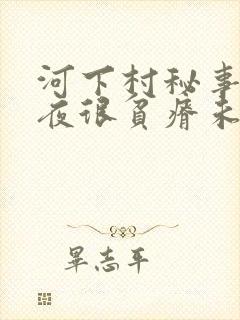 河下村秘事
夜很贫瘠未
畢志平